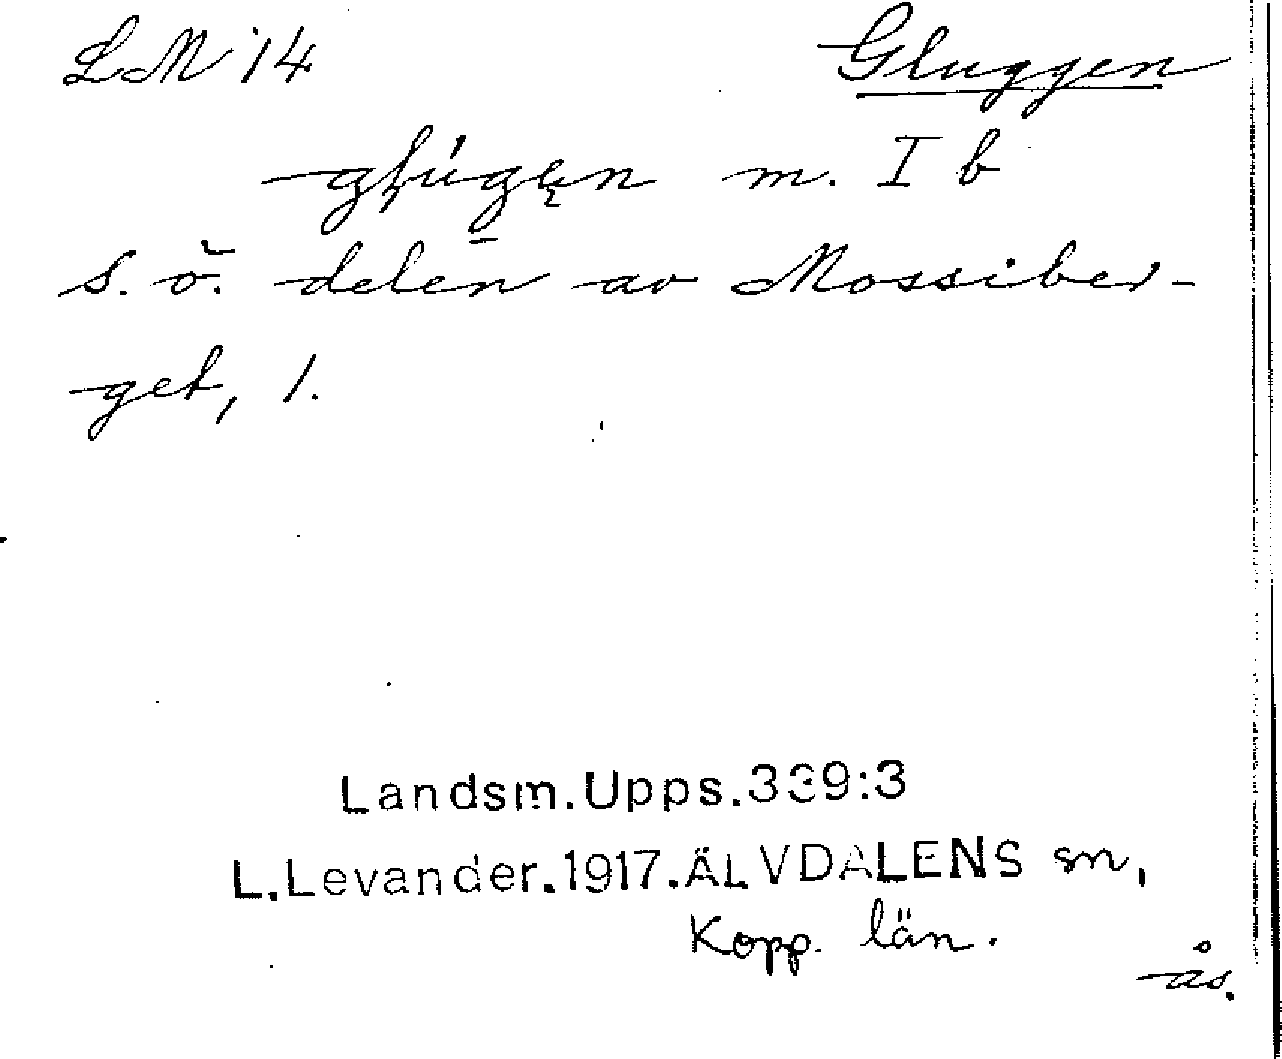 LM 14 Gluggen
m. I b
s. ö. delen av Mossiber-
get, 1.
Landsm.Upps.339:3
L.Levander.1917.ÄLVDALENS sn,
Kopp. län.
ås.